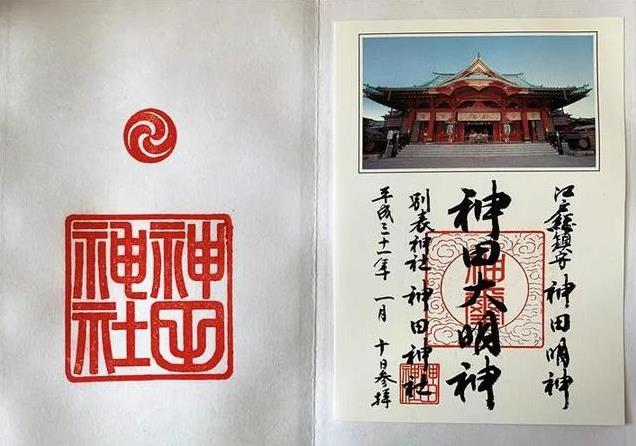 神田
神社
江戸総鎮守 神田明神
神田大明神
別表神社 神田神社
平成三十一年 一月 十日参拝